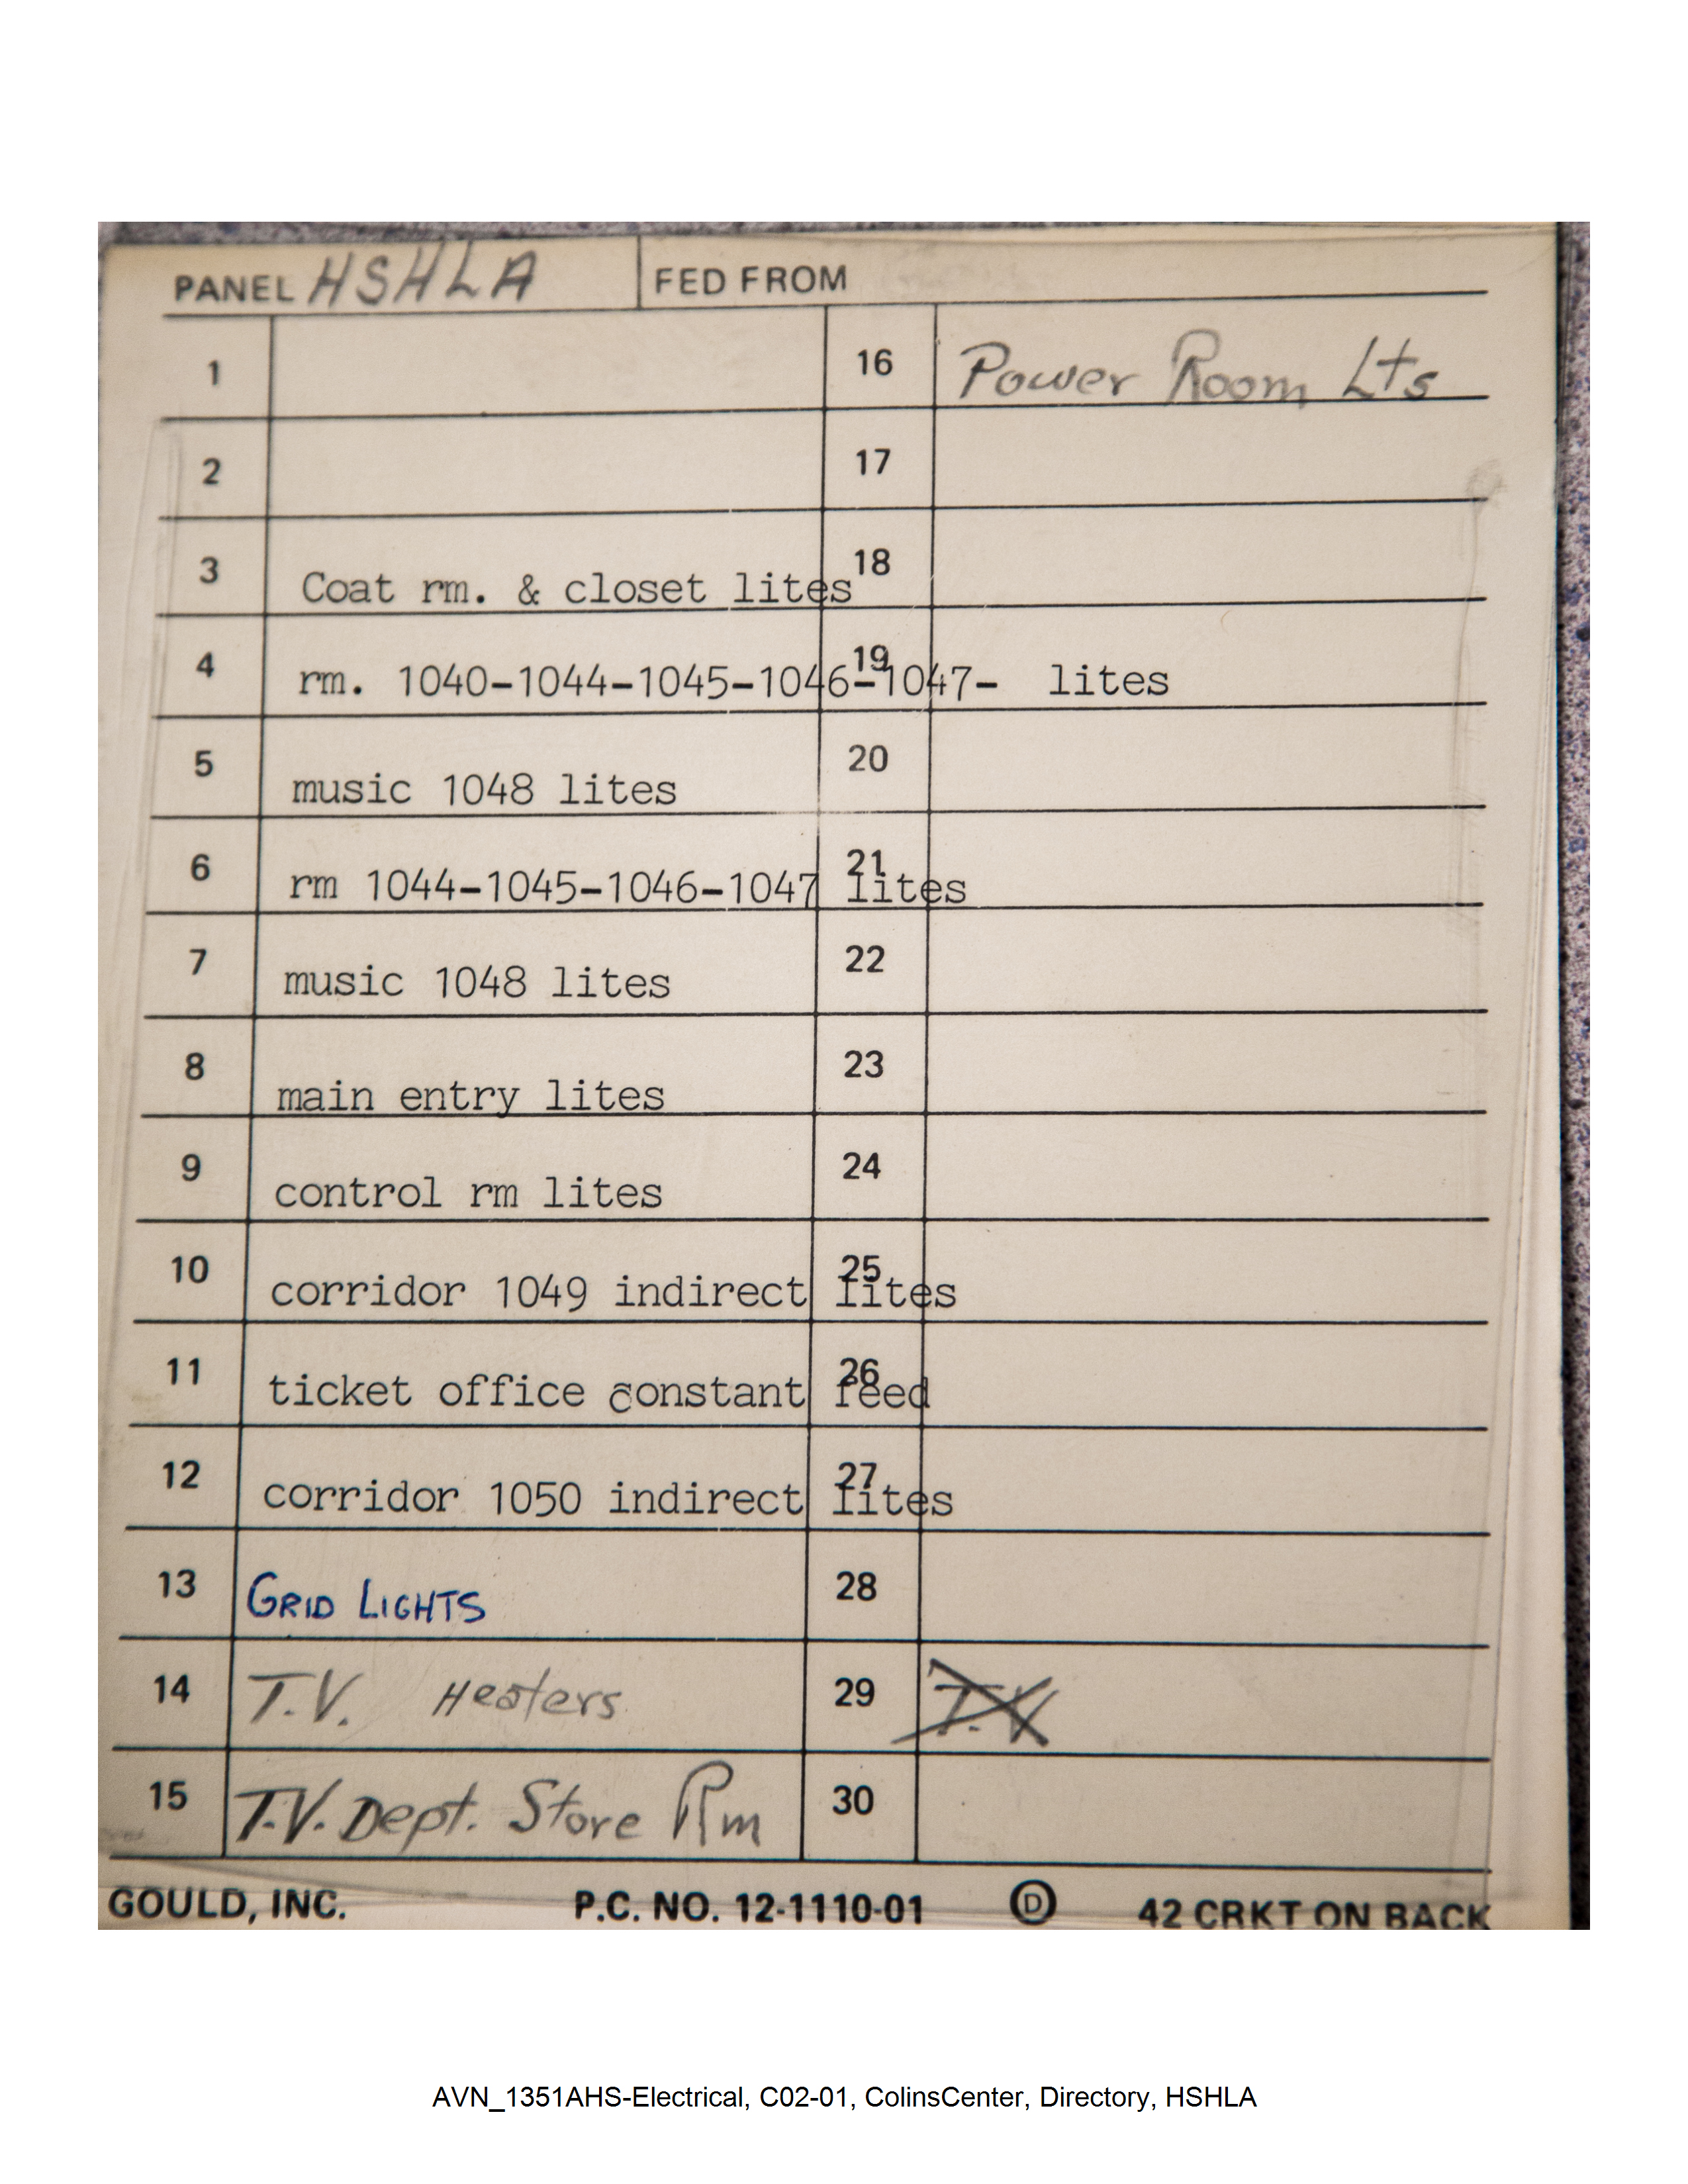 PANEL HSHLA FED FROM
1
16 Power Room Lts
2
17
3 Coat rm. & closet lites
18
4 rm. 1040-1044-1045-1046-1047- lites
19
5 music 1048 lites
20
6 rm 1044-1045-1046-1047 lites
21
7 music 1048 lites
22
8 main entry lites
23
9 control rm lites
24
10 corridor 1049 indirect lites
25
11 ticket office constant feed
26
12 corridor 1050 indirect lites
27
13 GRID LIGHTS
28
14 T.V. Heaters
29 T.V
15 T.V. Dept. Store Rm
30
GOULD, INC. P.C. NO. 12-1110-01 D 42 CRKT ON BACK
AVN_1351AHS-Electrical, C02-01, ColinsCenter, Directory, HSHLA